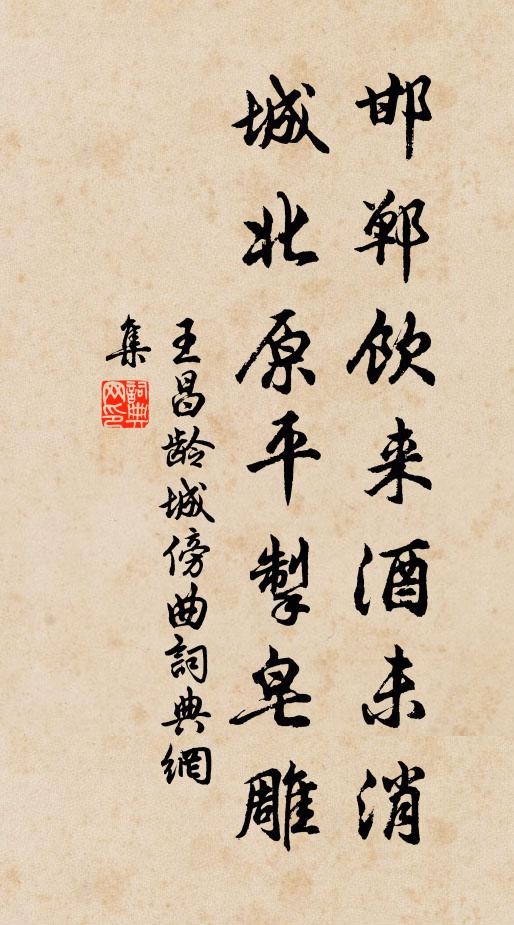 邯鄲飲来酒未消
城北原平掣皂雕
王昌龄城傍曲詞典網
集
詞典
网印